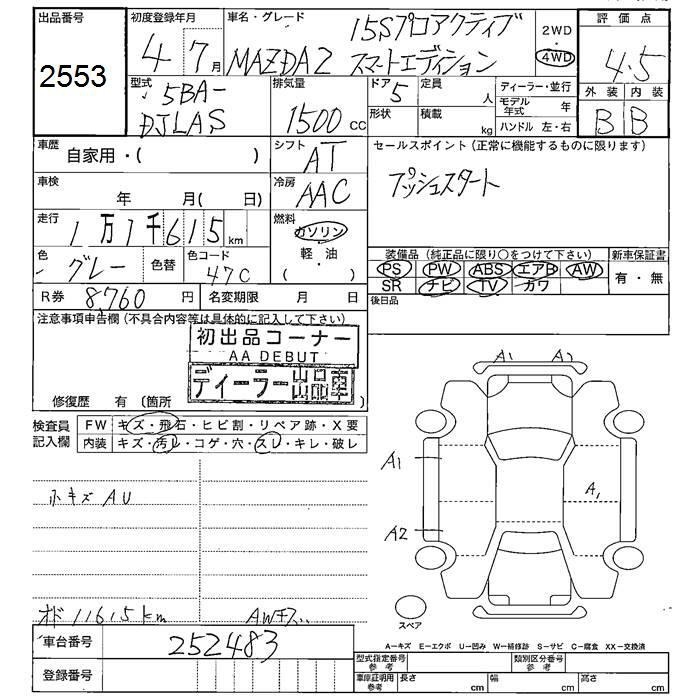 出品番号 初度登録年月 車名・グレード 2WD 評価点
2553 4年 7月 MAZDA2 15Sプロアクティブ 4WD 4.5
スマートエディション
外装 内装
B B
型式 排気量 ドア 定員 ディーラー・並行
5BA- 5 人 モデル年式 年
DJLAS 1500cc 形状 積載 kg ハンドル 左・右
車歴 シフト セールスポイント (正常に機能するものに限ります)
自家用・( ) AT プッシュスタート
車検 冷房
年 月(日) AAC
走行 燃料
1万1千615km ガソリン
軽・油
( )
色 色替 色コード 装備品 (純正品に限り○をつけて下さい) 新車保証書
グレー 47C PS PW ABS エアB AW 有・無
SR ナビ TV カワ
R券 8760円 名変期限 月 日 後日品
注意事項申告欄 (不具合内容等は具体的に記入して下さい)
初出品コーナー
AA DEBUT
ディーラー出品車
修復歴 有 (箇所 )
検査員記入欄 FW キズ・飛石・ヒビ割・リペア跡・X要
内装 キズ・汚レ・コゲ・穴・スレ・キレ・破レ
小キズ AU
オド 11615km AWキズ
A1 A2
A1 A1
A2
スペア
A-キズ E-エクボ U-凹み W-補修跡 S-サビ C-腐食 XX-交換済
車台番号 252483
登録番号
型式指定番号 参考 類別区分番号 参考
車庫証明用 参考 長さ cm 幅 cm 高さ cm